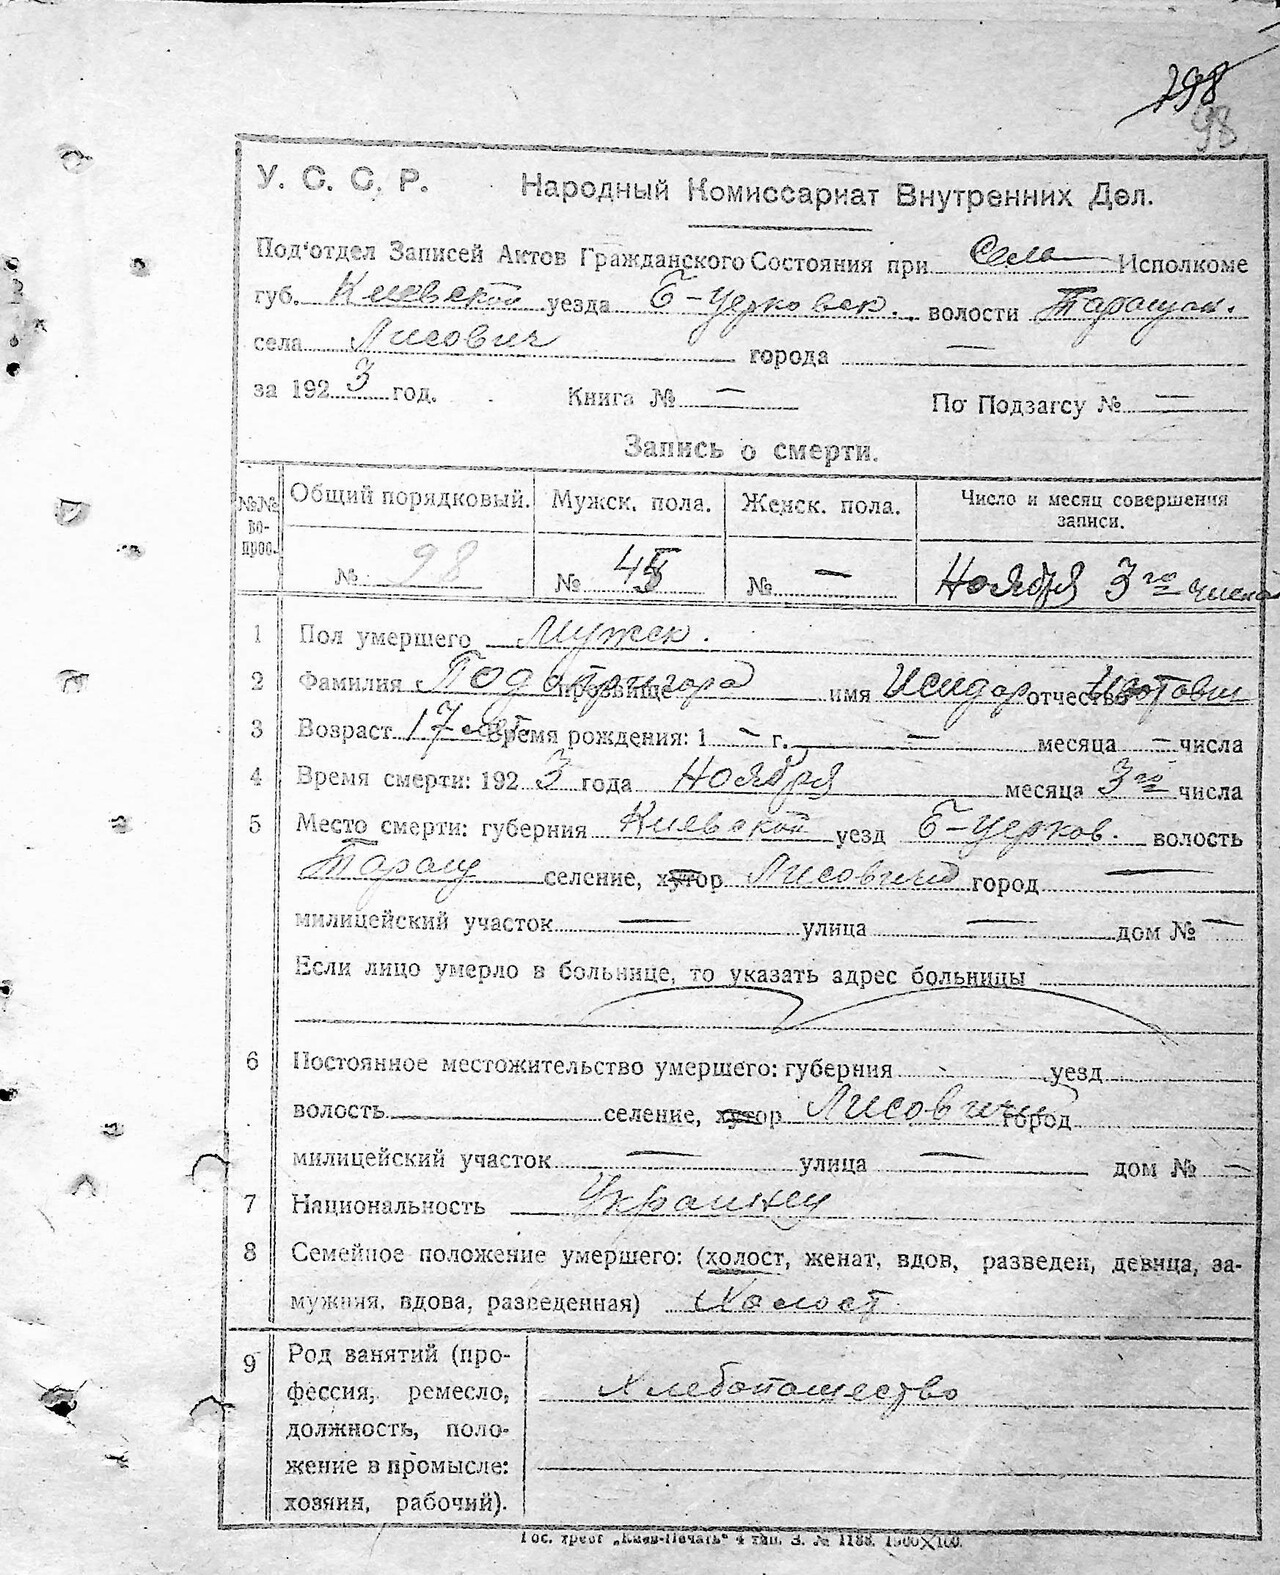 198
98
У. С. С. Р. Народный Комиссариат Внутренних Дел.
Под'отдел Записей Актов Гражданского Состояния при Села Исполкоме
губ. Киевской уезда Б-Церковск. волости Таращан.
села Лисович города —
за 1923 год. Книга № — По Подзагсу № —
Запись о смерти.
№№ вопрос. Общий порядковый. Мужск. пола. Женск. пола. Число и месяц совершения записи.
№ 98 № 45 № — Ноября 3го числа
1 Пол умершего Мужск.
2 Фамилия Подопригора прозвище имя Исидор отчество
3 Возраст 17 лет. Время рождения: 1 — г. — месяца — числа
4 Время смерти: 1923 года Ноября месяца 3го числа
5 Место смерти: губерния Киевской уезд Б-Церков. волость
Таращ селение, хутор Лисовичи город —
милицейский участок — улица — дом № —
Если лицо умерло в больнице, то указать адрес больницы
6 Постоянное местожительство умершего: губерния уезд
волость селение, хутор Лисовичи город
милицейский участок — улица — дом № —
7 Национальность Украинец
8 Семейное положение умершего: (холост, женат, вдов, разведен, девица, за-
мужняя, вдова, разведенная) Холост
9 Род занятий (про-
фессия, ремесло, Хлебопашество
должность, поло-
жение в промысле:
хозяин, рабочий).
Гос. трест „Киев-Печать" 4 тип. З. № 1188. 1500×100.